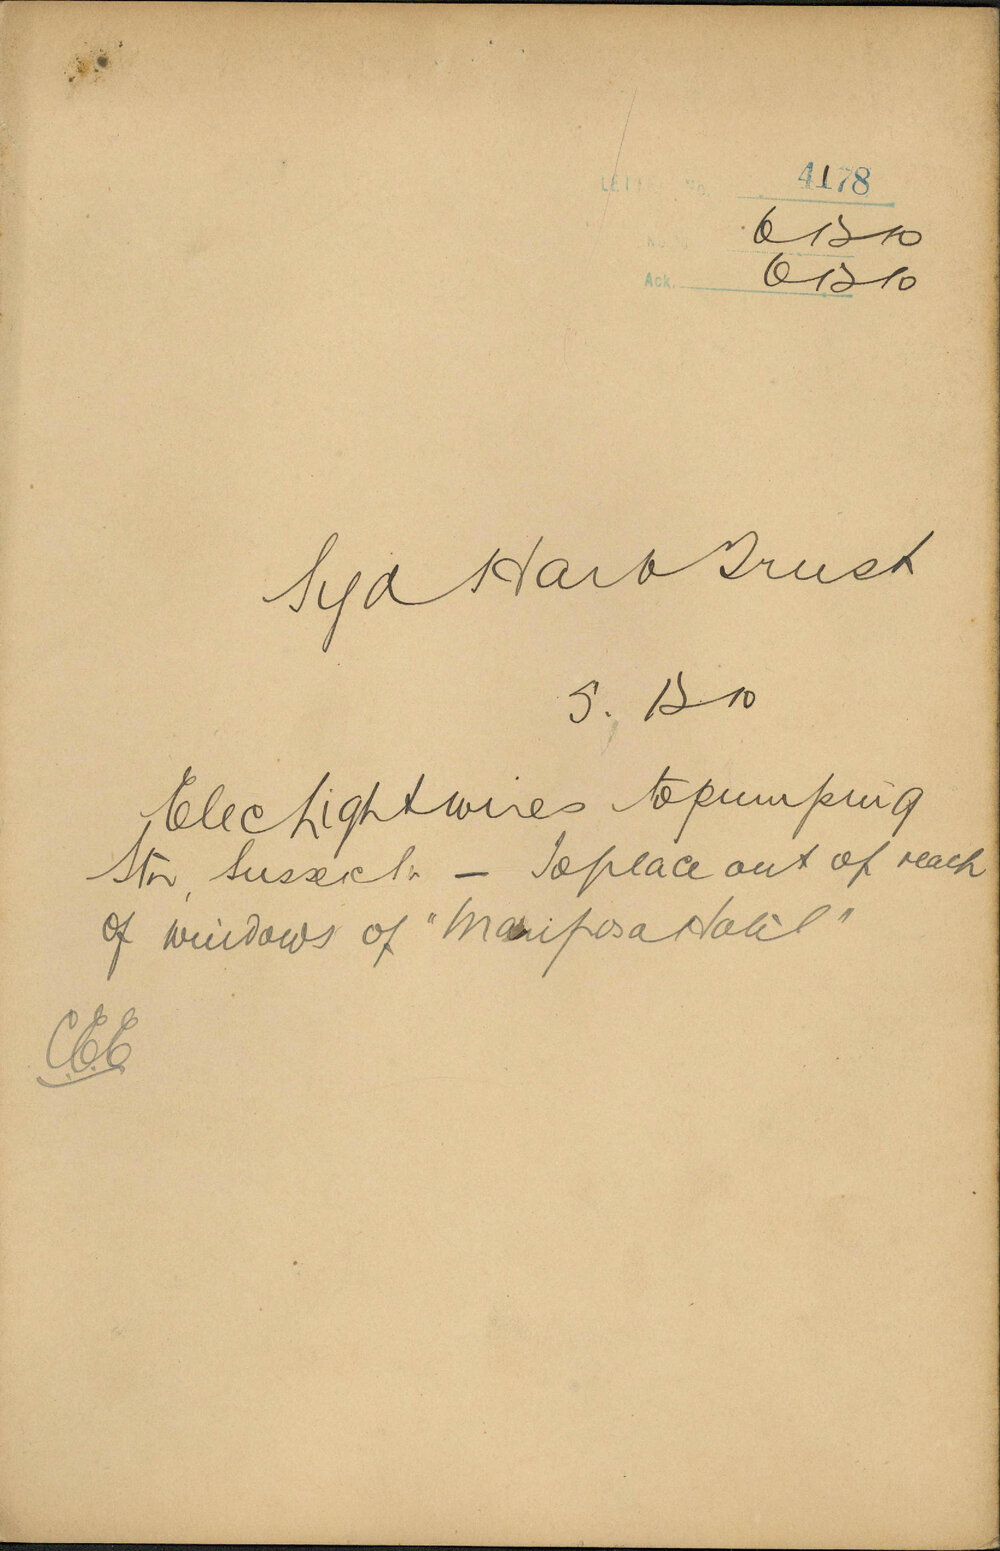 LETTER No. 4178
6 12 10
Ack. 6 12 10
Syd Harb Trust
5. 12 10
Elec Light wires to pumping
Stn, Sussex St. — To place out of reach
of windows of "Mariposa Hotel"
C.E.E